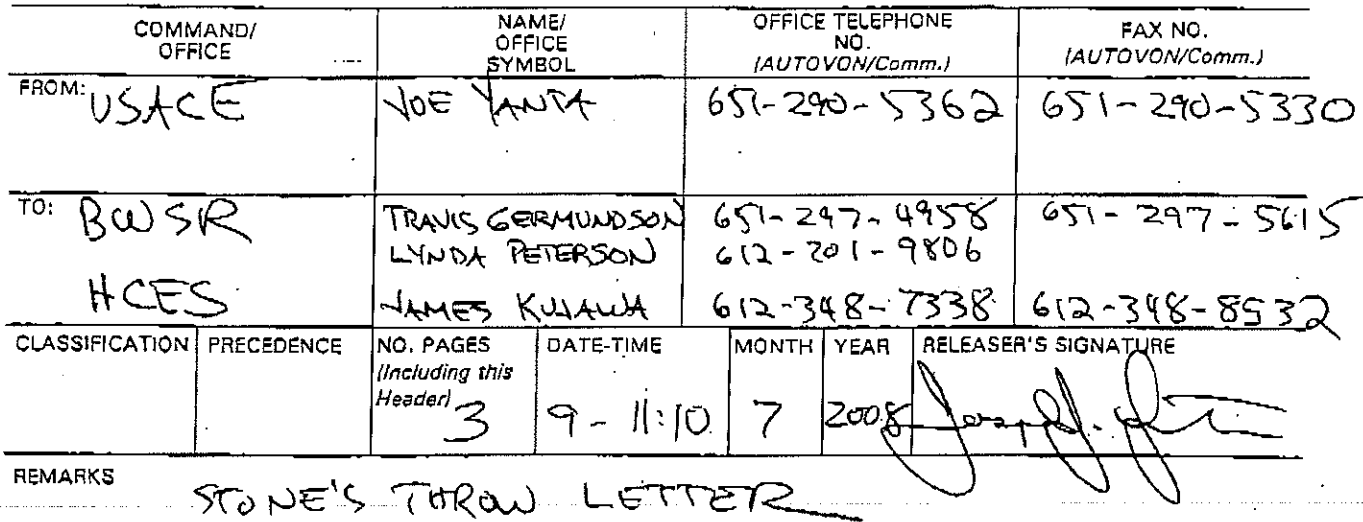 COMMAND/ OFFICE NAME/ OFFICE SYMBOL OFFICE TELEPHONE NO. (AUTOVON/Comm.) FAX NO. (AUTOVON/Comm.)
FROM: USACE JOE YANTA 651-290-5362 651-290-5330
TO: BWSR TRAVIS GERMUNDSON 651-297-4958 651-297-5615
LYNDA PETERSON 612-201-9806
HCES JAMES KUJAWA 612-348-7338 612-348-8532
CLASSIFICATION PRECEDENCE NO. PAGES (Including this Header) DATE-TIME MONTH YEAR RELEASER'S SIGNATURE
3 9 - 11:10 7 2008
REMARKS STONE'S THROW LETTER